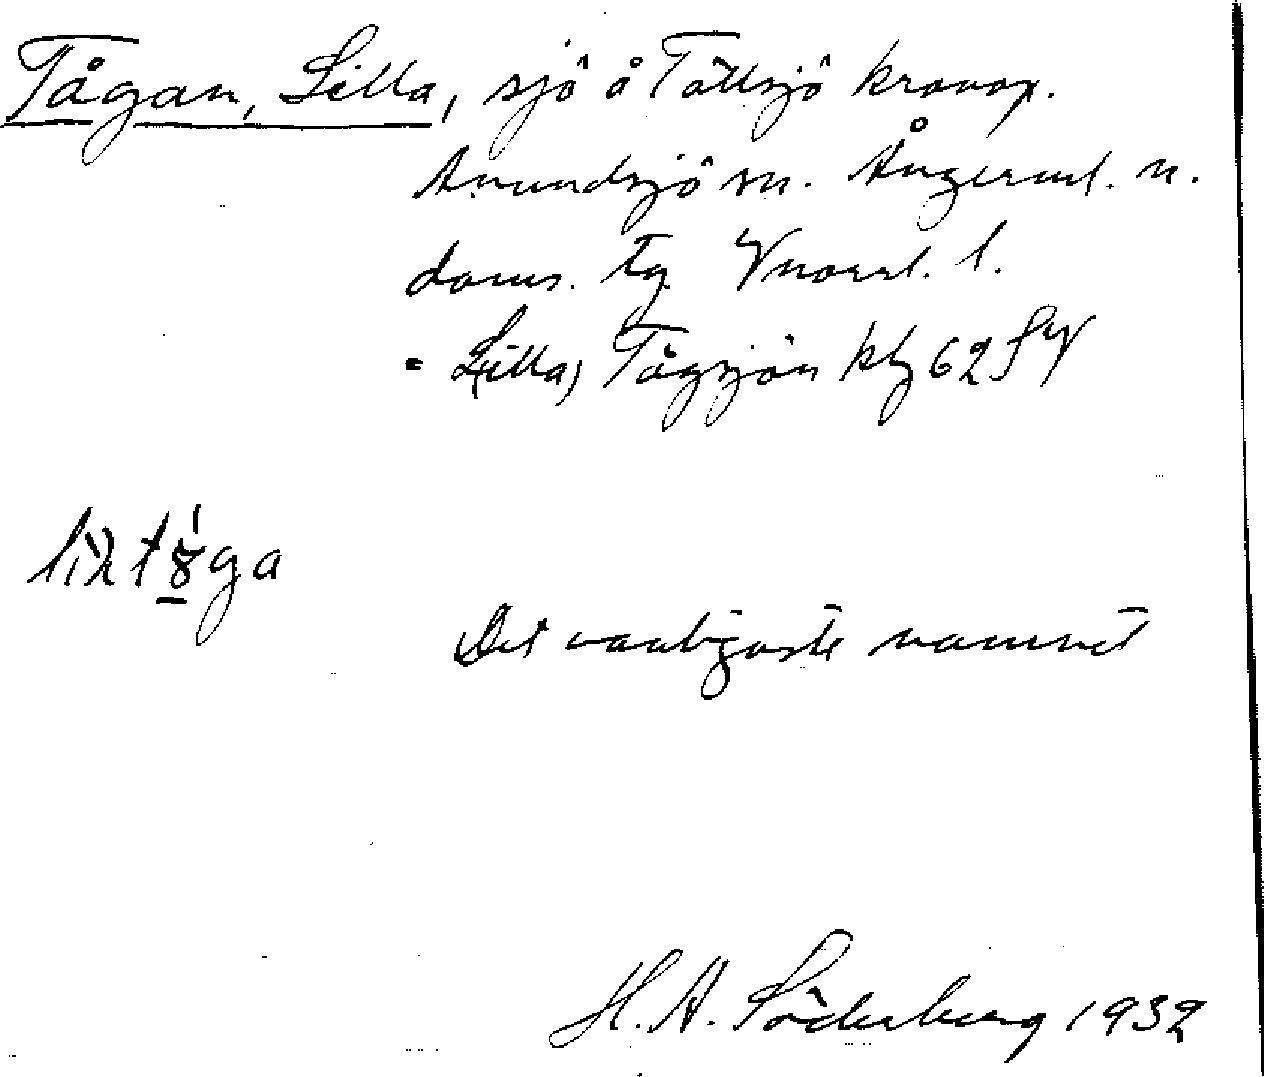 Tågan, Lilla, sjö å Tällsjö kronop.
Anundsjö sn. Ångerml. n.
doms. tg. Vnorrl. l.
= L(illa) Tågsjön kbl 62 SV
Det vanligaste namnet
H. A. Söderberg 1932